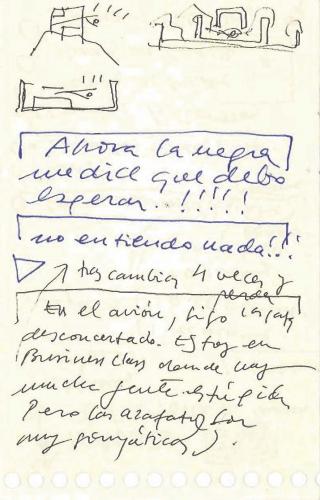 Ahora la negra
me dice que debo
esperar..!!!!!
no entiendo nada!!!
tras cambiar 4 veces y
perder
En el avión, sigo
desconcertado. Estoy en
Business Class donde hay
mucha gente estúpida
Pero las azafatas son
muy simpáticas).